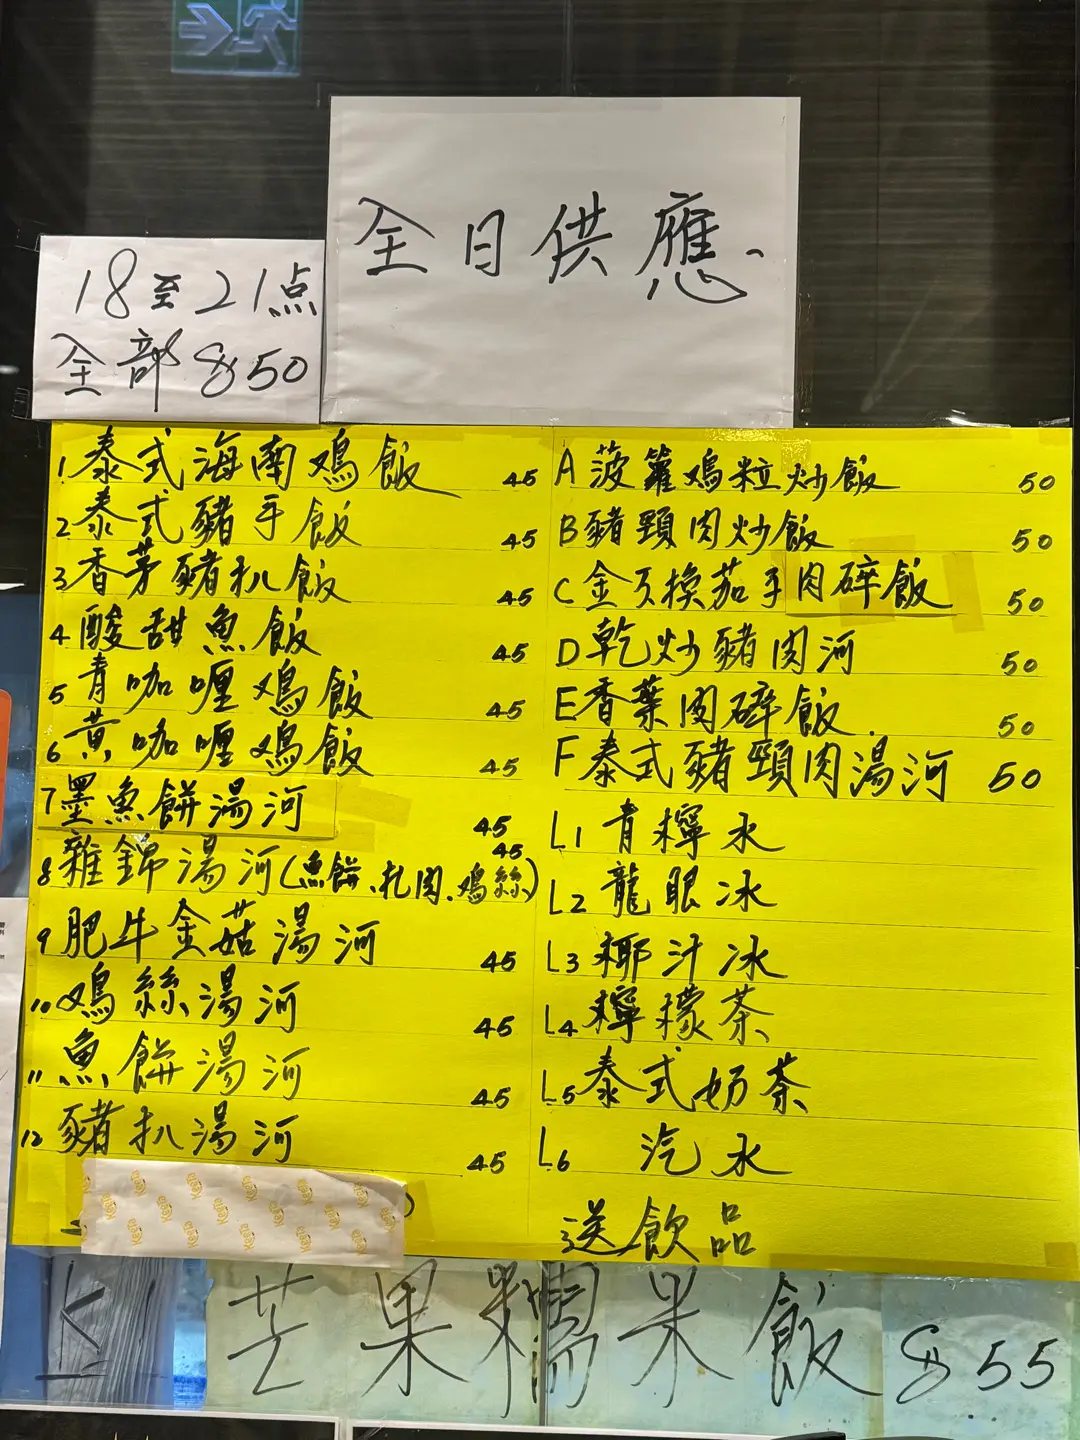 全日供應
18至21点
全部$50
1 泰式海南鸡飯 45
2 泰式豬手飯 45
3 香茅豬扒飯 45
4 酸甜魚飯 45
5 青咖喱鸡飯 45
6 黄咖喱鸡飯 45
7 墨魚餅湯河 45
8 雜錦湯河(魚餅、扎肉、鸡絲) 45
9 肥牛金菇湯河 45
10 鸡絲湯河 45
11 魚餅湯河 45
12 豬扒湯河 45
A 菠籮鸡粒炒飯 50
B 豬頸肉炒飯 50
C 金不換茄子肉碎飯 50
D 乾炒豬肉河 50
E 香葉肉碎飯 50
F 泰式豬頸肉湯河 50
L1 青檸水
L2 龍眼冰
L3 椰汁冰
L4 檸檬茶
L5 泰式奶茶
L6 汽水
送飲品
K
芒果糯米飯 $55